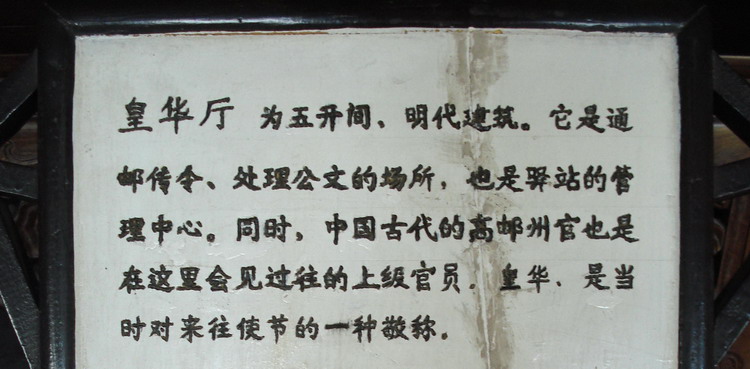 皇华厅 为五开间、明代建筑。它是通
邮传令、处理公文的场所，也是驿站的管
理中心。同时，中国古代的高邮州官也是
在这里会见过往的上级官员。皇华、是当
时对来往使节的一种敬称。